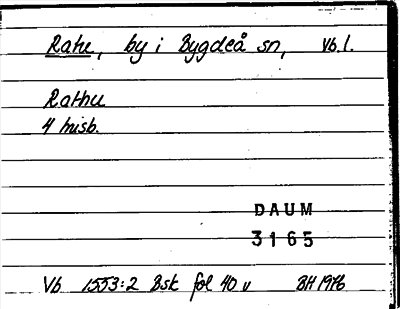 Ratu, by i Bygdeå sn, Vb.l.
Rathu
4 husb.
DAUM
3165
Vb 1553:2 Bsk fol 40 v BH 1976